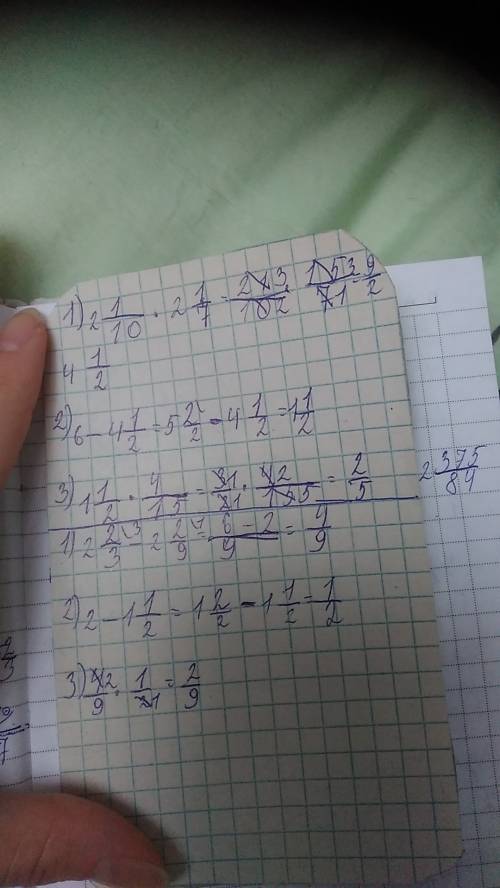 1) 2 1/10 · 2 1/7 = 21 3/10 2 · 15 3/7 1 = 9/2
4 1/2
2) 6 - 4 1/2 = 5 2/2 - 4 1/2 = 1 1/2
3) 1 1/2 · 4/15 = 3 1/2 1 · 4 2/15 5 = 2/5
2 375/84
1) 2 2/3 - 2 2/9 = 6 - 2/9 = 4/9
2) 2 - 1 1/2 = 1 2/2 - 1 1/2 = 1/2
3) 4 2/9 · 1/2 1 = 2/9